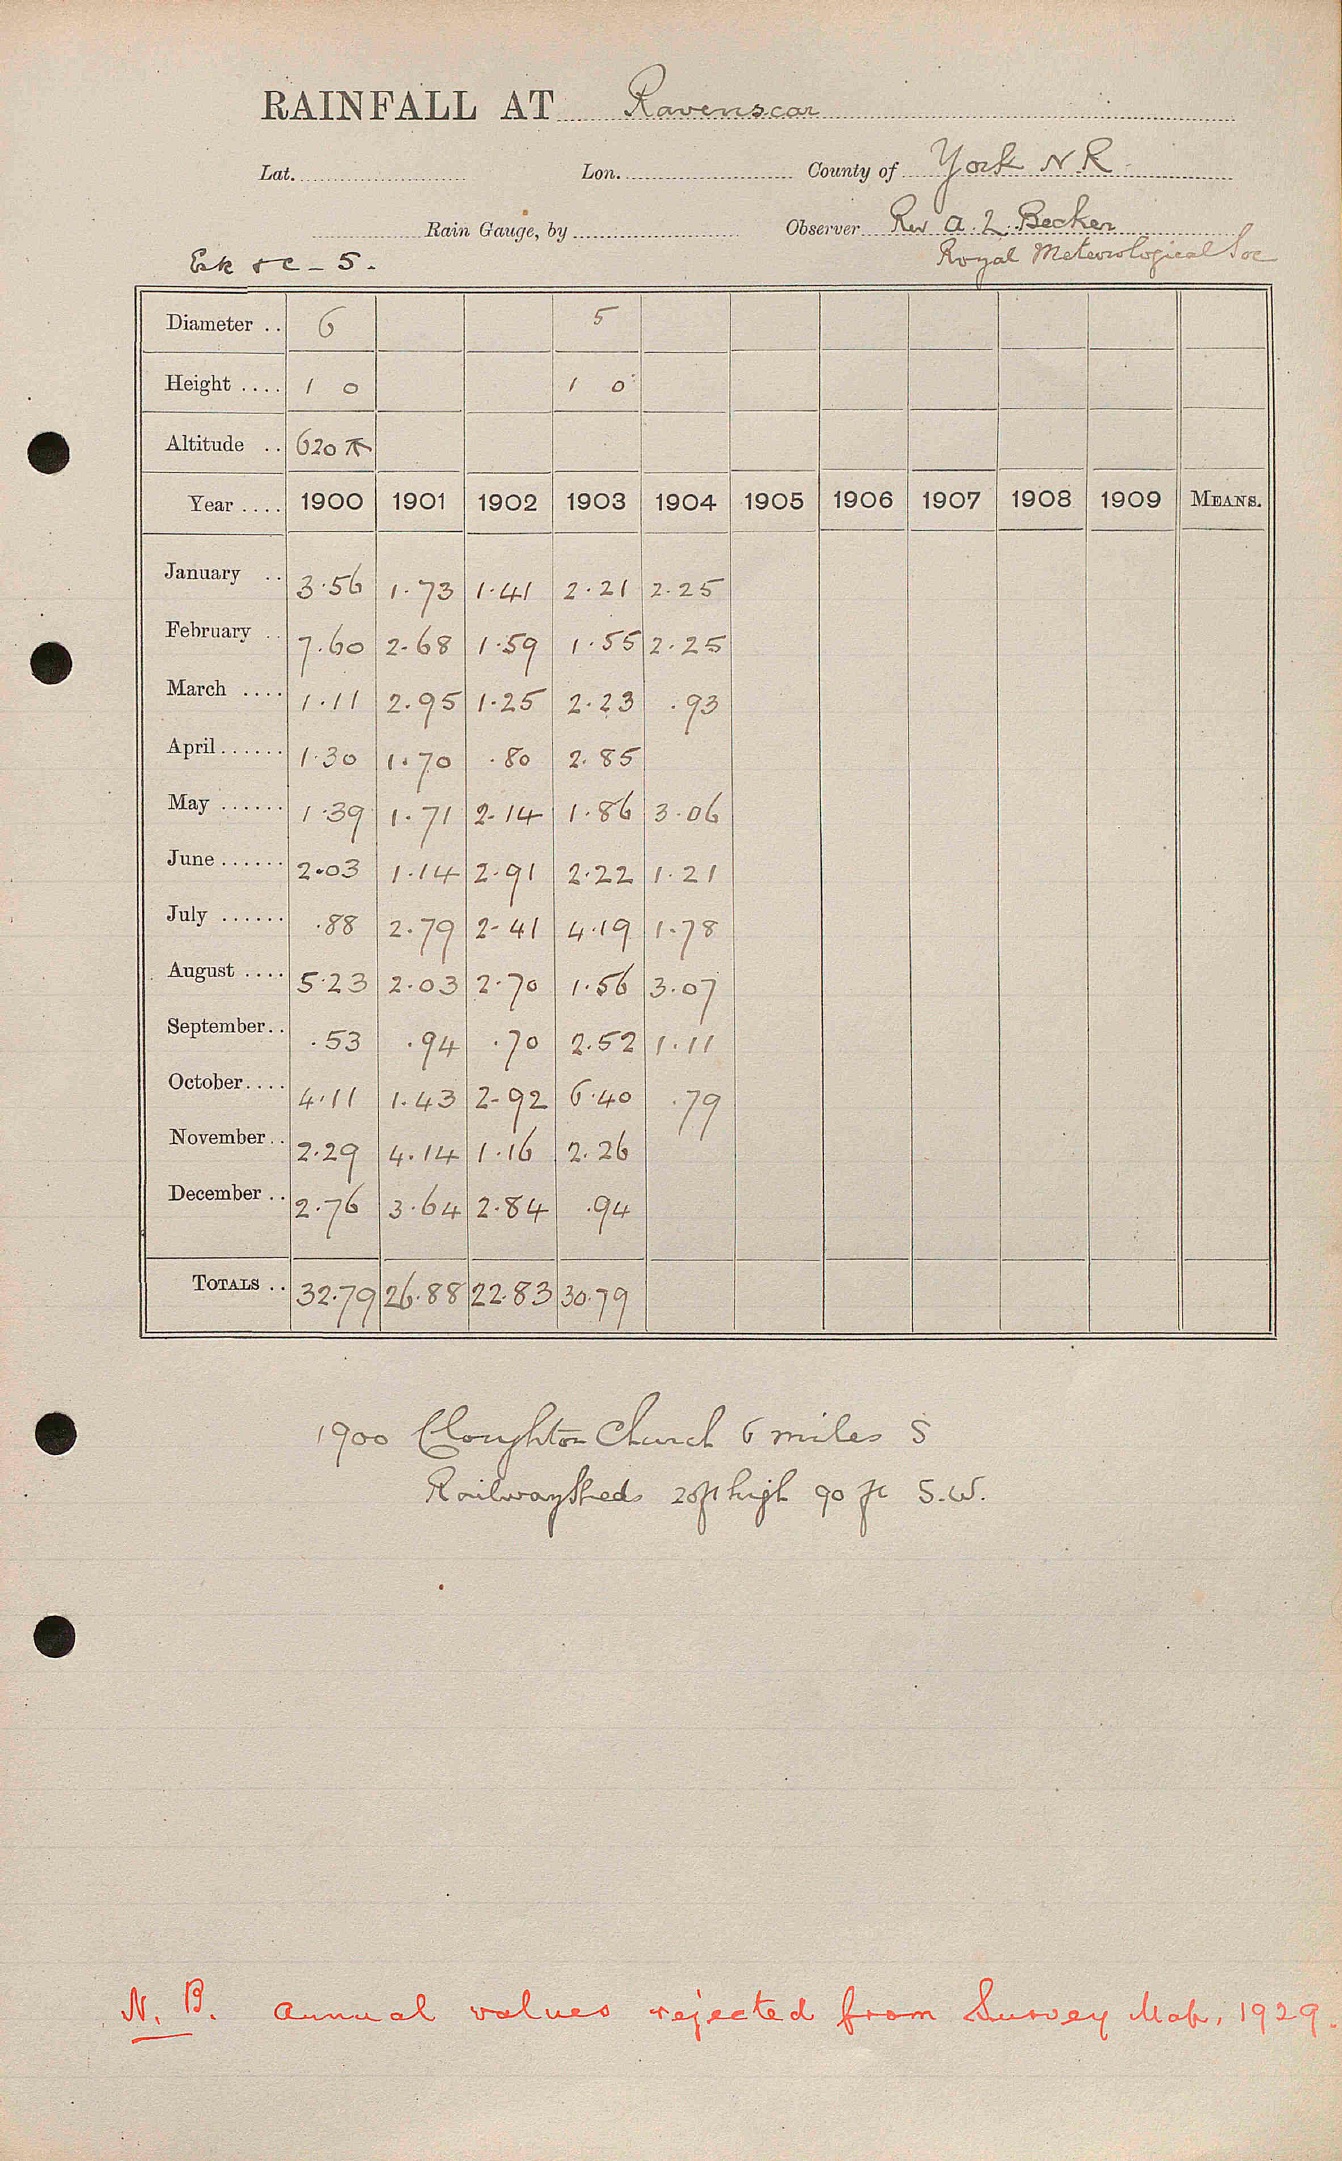 RAINFALL AT Ravenscar
Lat. Lon. County of York N.R.
Rain Gauge, by Observer Rev A. L. Becker
Royal Meteorological Soc
5.
Diameter .. 6 5
Height .... 1 0 1 0
Altitude .. 620
Year .... 1900 1901 1902 1903 1904 1905 1906 1907 1908 1909 MEANS.
January .. 3.56 1.73 1.41 2.21 2.25
February .. 7.60 2.68 1.59 1.55 2.25
March .... 1.11 2.95 1.25 2.23 .93
April...... 1.30 1.70 .80 2.85
May ...... 1.39 1.71 2.14 1.86 3.06
June...... 2.03 1.14 2.91 2.22 1.21
July ...... .88 2.79 2.41 4.19 1.78
August .... 5.23 2.03 2.70 1.56 3.07
September.. .53 .94 .70 2.52 1.11
October.... 4.11 1.43 2.92 6.40 .79
November.. 2.29 4.14 1.16 2.26
December .. 2.76 3.64 2.84 .94
TOTALS .. 32.79 26.88 22.83 30.79
1900 Cloughton Church 6 miles S
Railway Sheds 20ft high 90 ft S.W.
N.B. Annual values rejected from Survey Map, 1929.